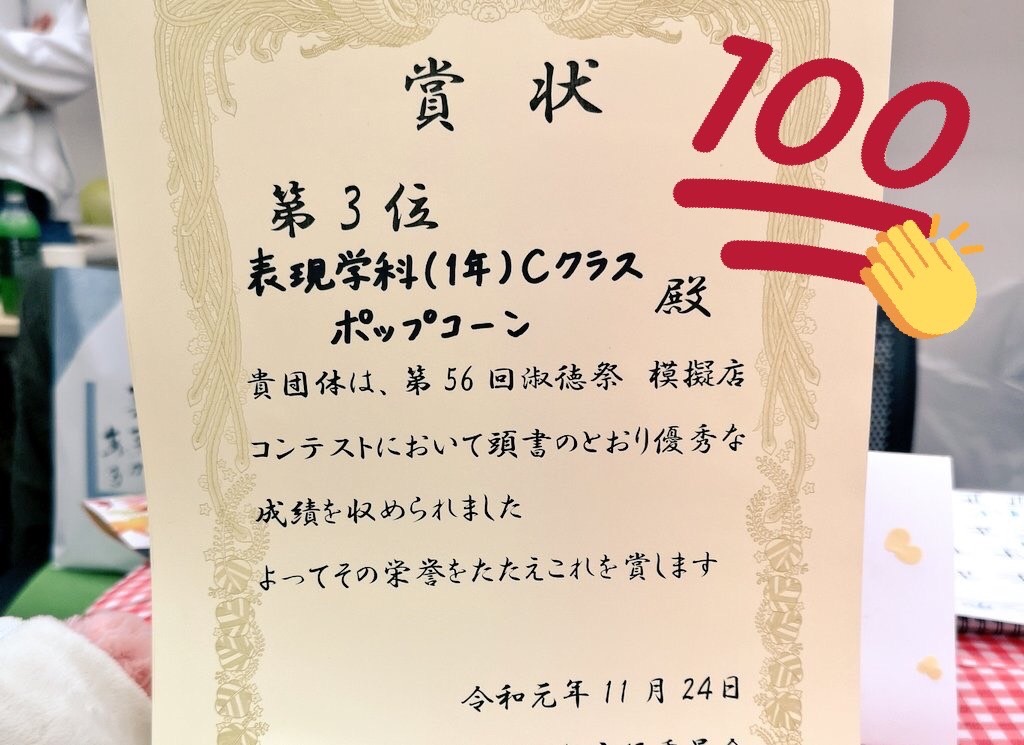 賞状
第3位
表現学科(1年)Cクラス
ポップコーン 殿
貴団体は、第56回淑徳祭 模擬店
コンテストにおいて頭書のとおり優秀な
成績を収められました
よってその栄誉をたたえこれを賞します
令和元年11月24日
100